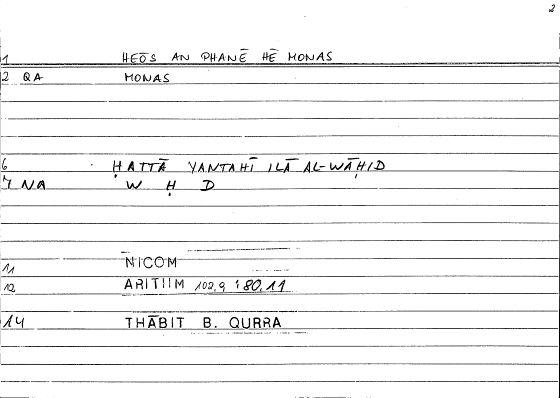 2
1 HEŌS AN PHANĒ HĒ MONAS
2 QA MONAS
6 ḤATTĀ YANTAHĪ ILĀ AL-WĀḤID
7 NA W Ḥ D
11 NICOM
12 ARITIIM 102,9 : 80,11
14 THĀBIT B. QURRA